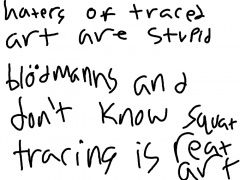 haters of traced
art are stupid
blödmanns and
don't know squat
tracing is reat
art